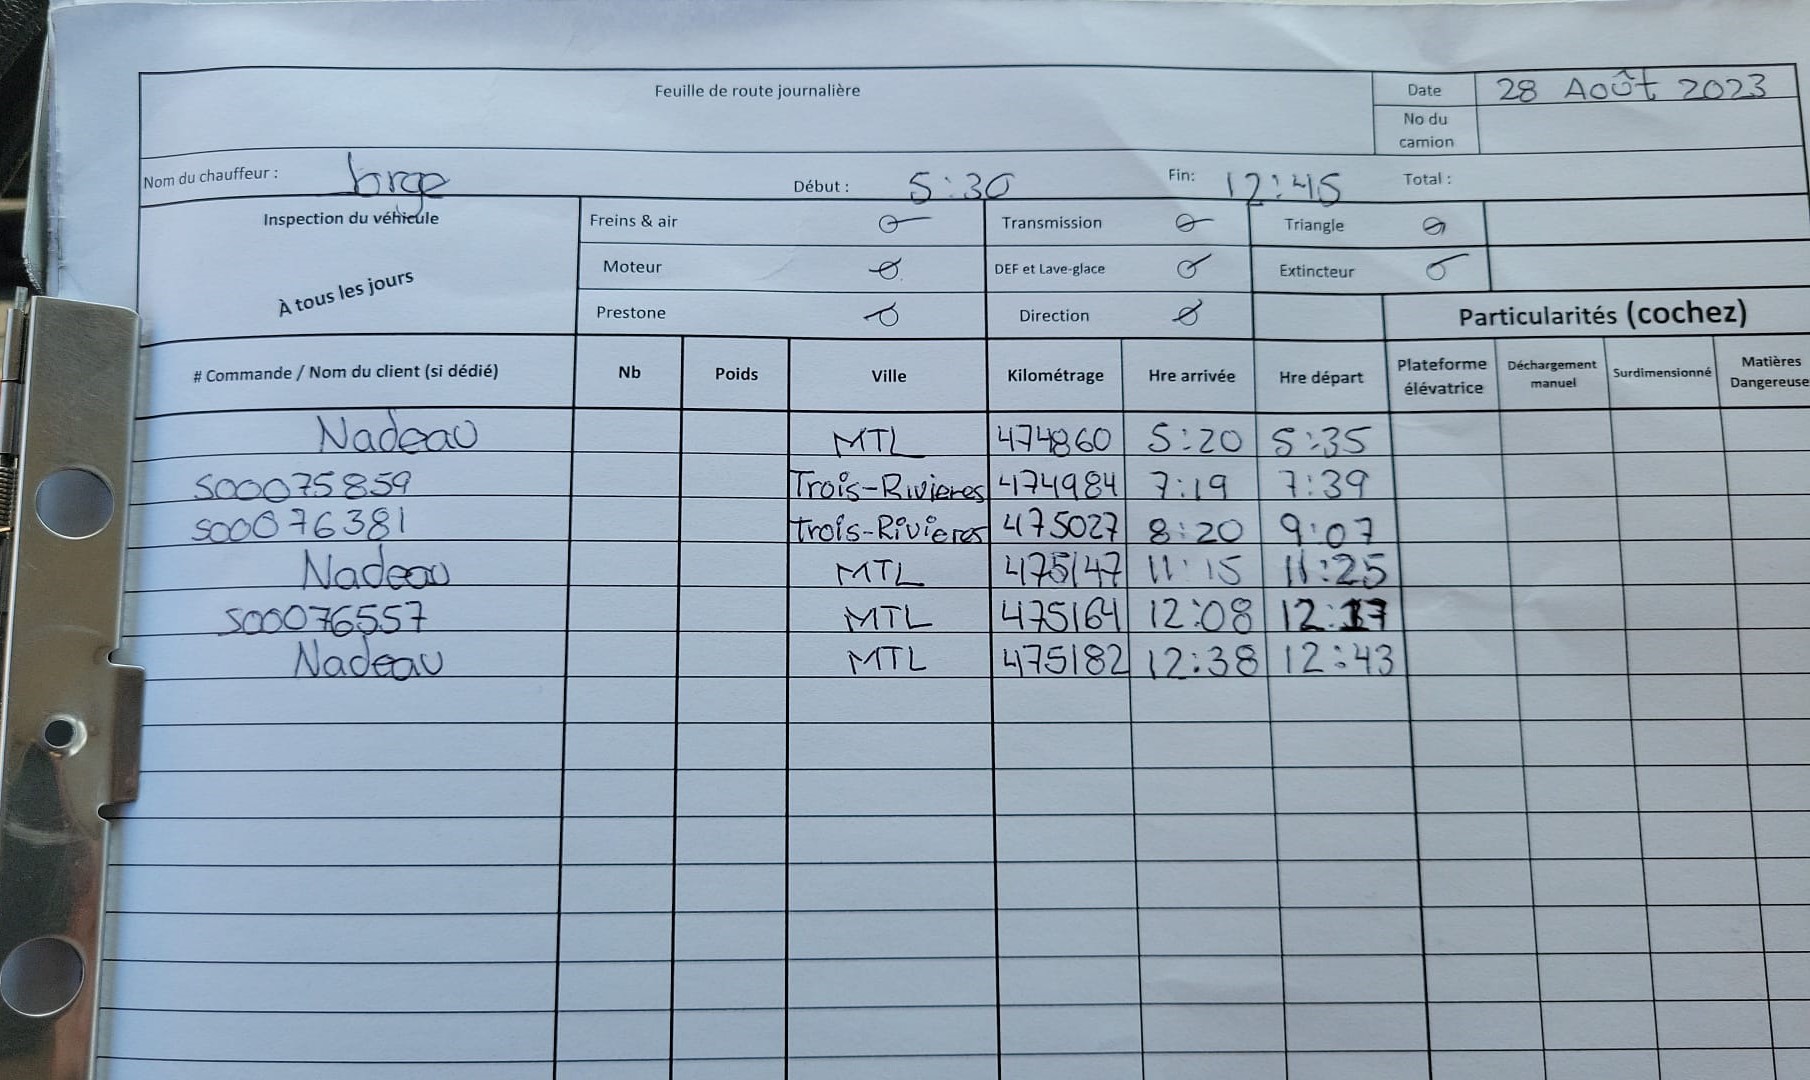 Feuille de route journalière
Date 28 Août 2023
No du camion
Nom du chauffeur : Jorge Début : 5:30 Fin: 12:45 Total :
Inspection du véhicule
À tous les jours
Freins & air Transmission Triangle
Moteur DEF et Lave-glace Extincteur
Prestone Direction
Particularités (cochez)
# Commande / Nom du client (si dédié) Nb Poids Ville Kilométrage Hre arrivée Hre départ Plateforme élévatrice Déchargement manuel Surdimensionné Matières Dangereuse
Nadeau MTL 474860 5:20 5:35
S00075859 Trois-Rivieres 474984 7:19 7:39
S00076381 Trois-Rivieres 475027 8:20 9:07
Nadeau MTL 475147 11:15 11:25
S00076557 MTL 475164 12:08 12:17
Nadeau MTL 475182 12:38 12:43